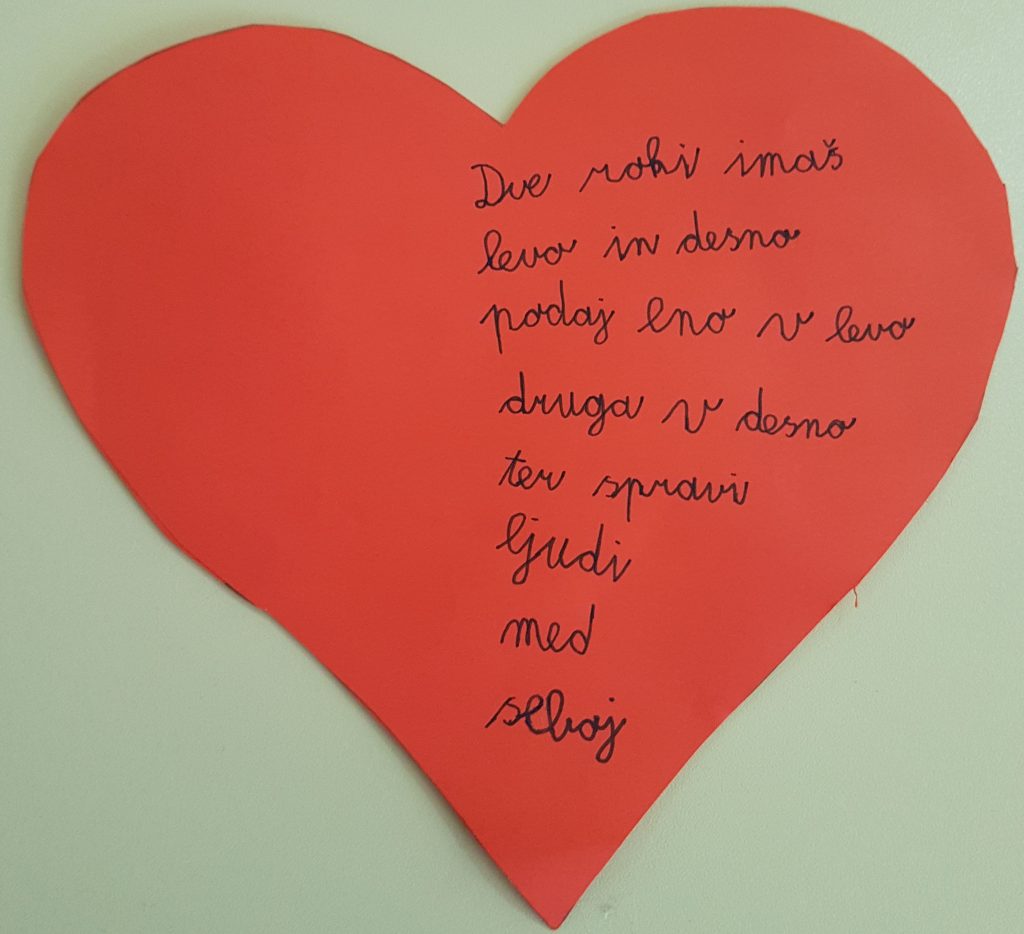 Dve roki imaš
levo in desno
podaj eno v levo
druga v desno
ter spravi
ljudi
med
seboj